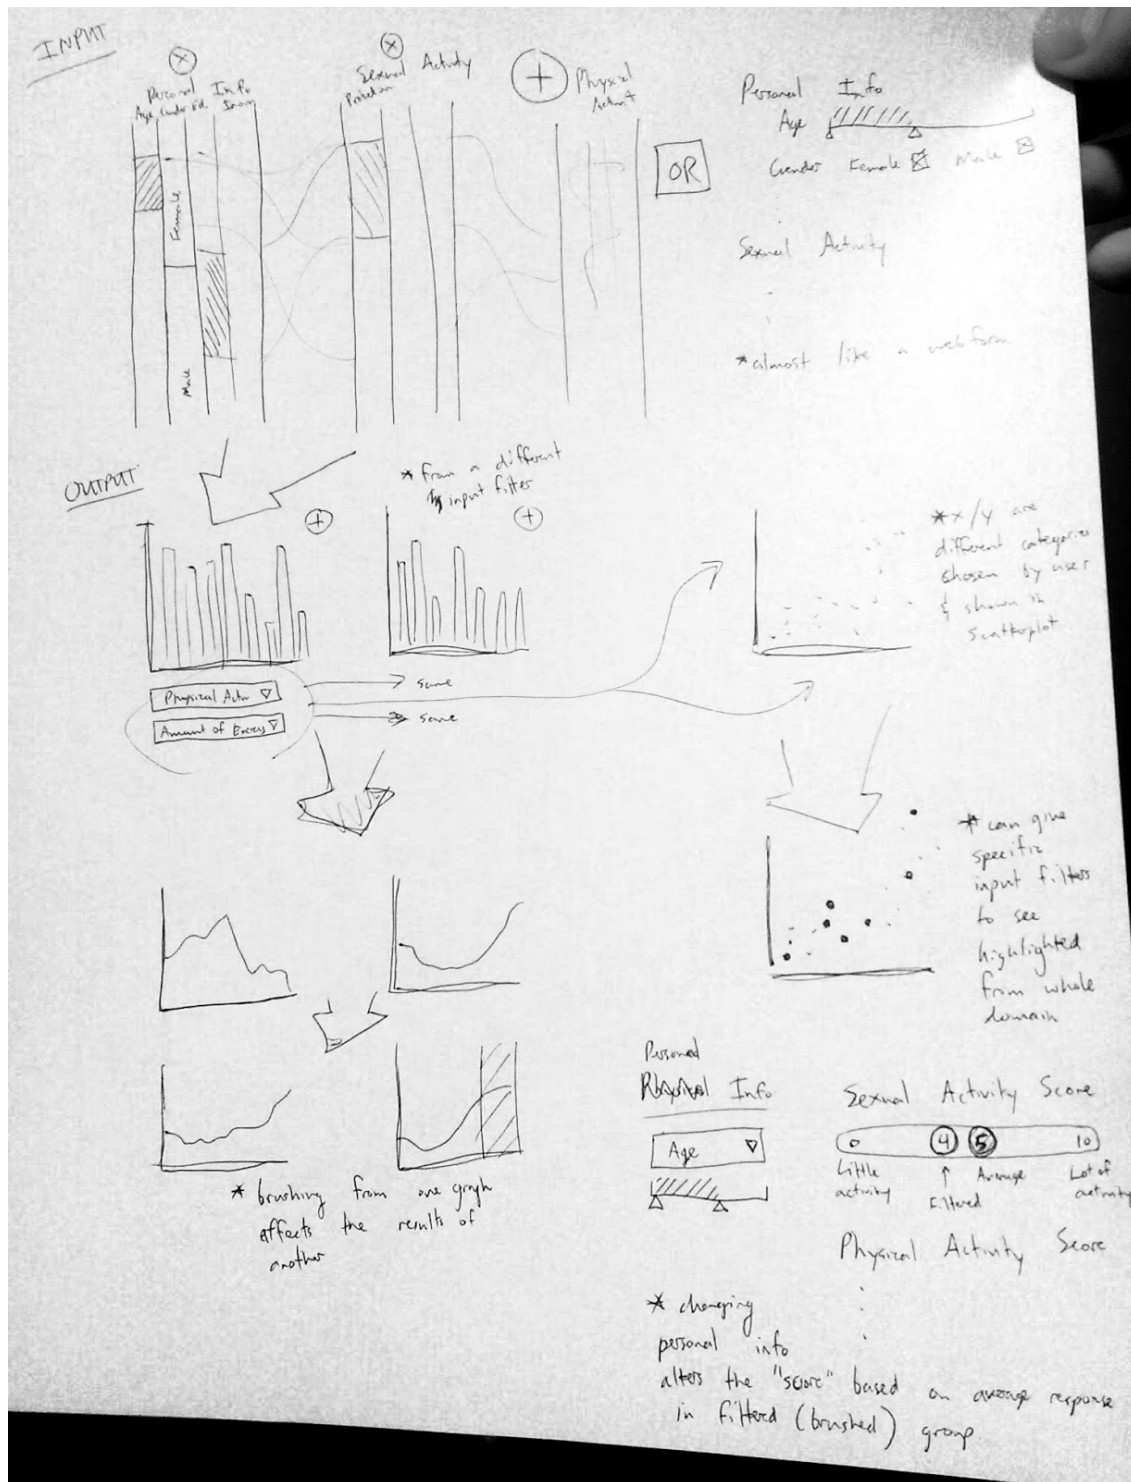 INPUT
Personal Info
Age Gender Ed. Incom
Female
Male
Sexual Activity
Protection
Physical
Activit
OR
Personal Info
Age
Gender Female Male
Sexual Activity
*almost like a webform
OUTPUT
* from a different
input filter
*x/y are
different categories
chosen by user
& shown in
scatterplot
Physical Activ
Amount of Exercis
same
same
* can give
specific
input filters
to see
highlighted
from whole
domain
* brushing from one graph
affects the results of
another
Personal
Info
Age
Sexual Activity Score
0 4 5 10
Little
activity
Filtered
Average
Lot of
activity
Physical Activity Score
* changing
personal info
alters the "score" based on average response
in filtered (brushed) group